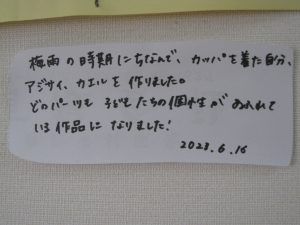 梅雨の時期にちなんで、カッパを着た自分、
アジサイ、カエルを作りました。
どのパーツも子どもたちの個性があふれて
いる作品になりました!
2023.6.16